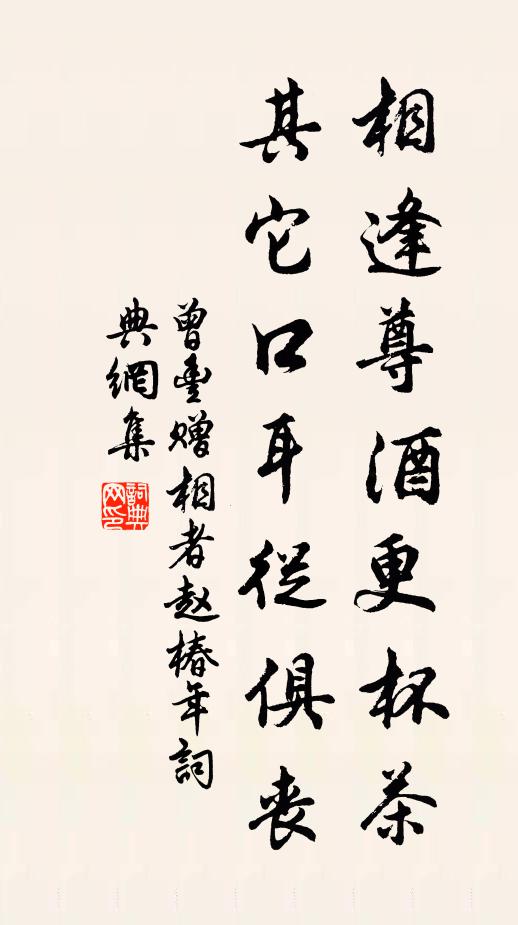 相逢尊酒更杯茶
其它口耳從俱喪
曾豐赠相者赵椿年詞
典網集
詞典
网印